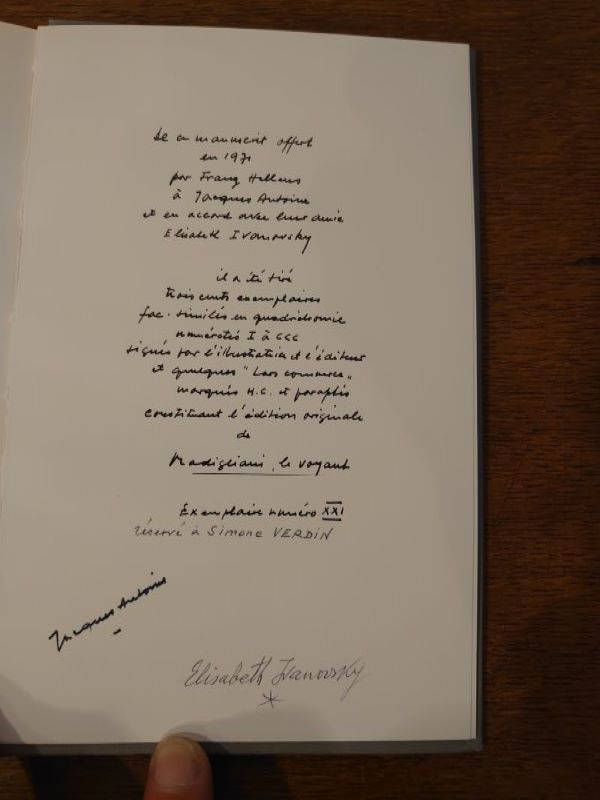 De ce manuscrit offert
en 1971
par Franz Hellens
à Jacques Antoine
et en accord avec leur amie
Elisabeth Ivanovsky
il a été tiré
trois cents exemplaires
fac-similés en quadrichromie
numérotés I à CCC
signés par l'illustratrice et l'éditeur
et quelques "hors commerce"
marqués H.C. et paraphés
constituant l'édition originale
de
Modigliani, le voyant
Exemplaire numéro XXI
réservé à Simone VERDIN
Jacques Antoine
Elisabeth Ivanovsky